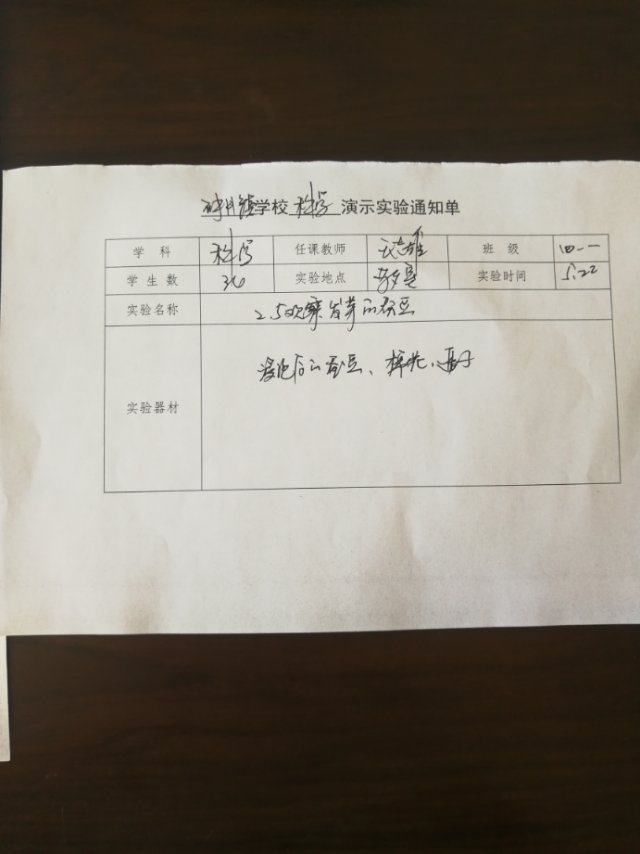 学校 科学 演示实验通知单
学 科 科学 任课教师 班 级 四.一
学 生 数 36 实验地点 教室 实验时间 5.22
实验名称 2.5观察发芽的蚕豆
实验器材 浸泡后的蚕豆、棉花、